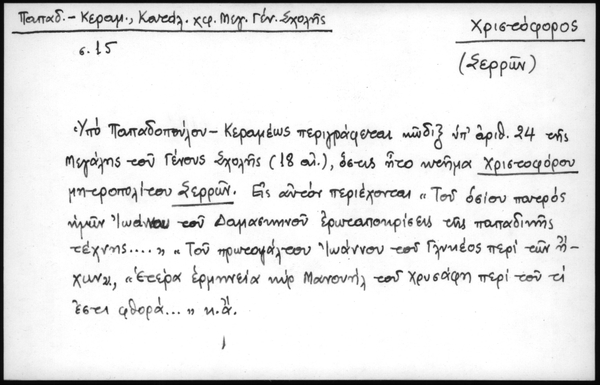 Παπαδ.- Κεραμ., Καταλ. χφ. Μεγ. Γέν. Σχολῆς
σ. 15
Χριστόφορος
(Σερρῶν)
Ὑπό Παπαδοπούλου - Κεραμέως περιγράφεται κῶδιξ ὑπ' ἀριθ. 24 τῆς
Μεγάλης τοῦ Γένους Σχολῆς (18 αἰ.), ὅστις ἦτο κτῆμα Χριστοφόρου
μητροπολίτου Σερρῶν. Εἰς αὐτόν περιέχονται « Τοῦ ὁσίου πατρός
ἡμῶν Ἰωάννου τοῦ Δαμασκηνοῦ ἐρωταποκρίσεις τῆς παπαδικῆς
τέχνης.... » « Τοῦ πρωτοψάλτου Ἰωάννου τοῦ Γλυκέος περί τῶν ἤ-
χων», «ἑτέρα ἑρμηνεία κὺρ Μανουήλ τοῦ Χρυσάφη περί τοῦ τί
ἐστι φθορά... » κ.ἄ.